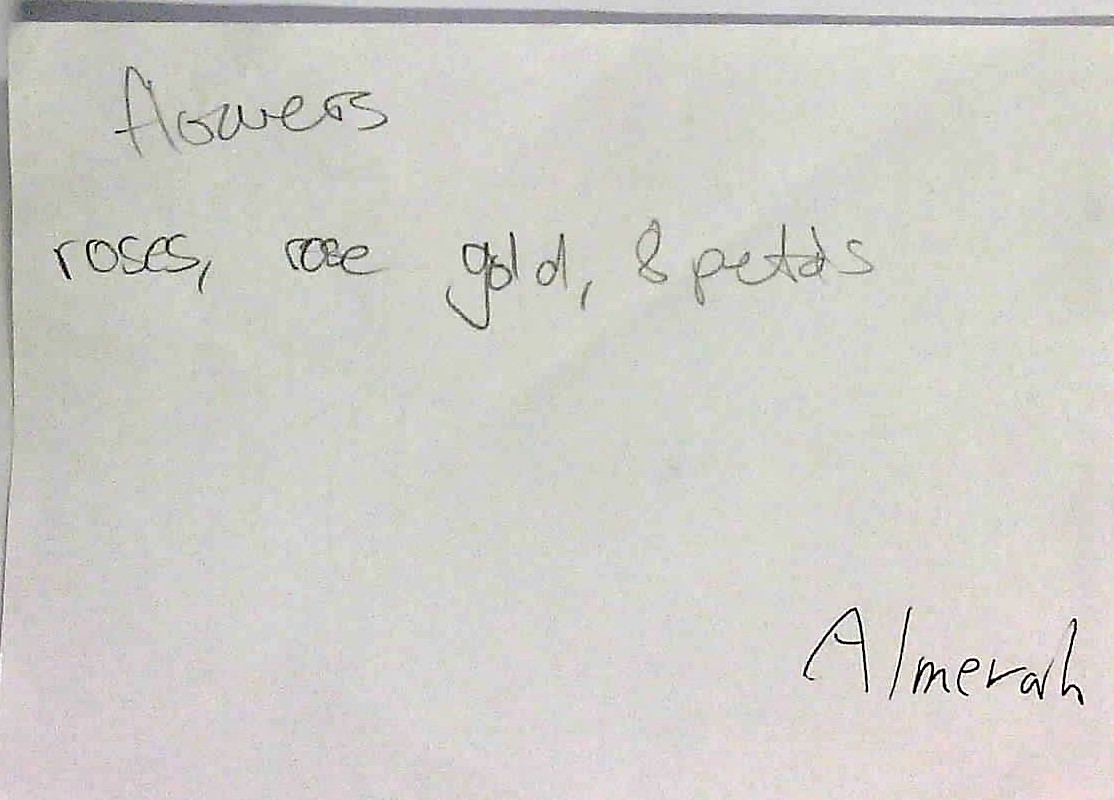 flowers
roses, rose gold, 8 petals
Almerah